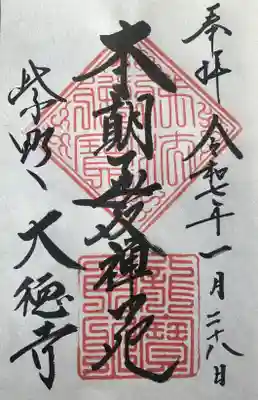 奉拝 令和七年一月二十八日
本朝無双禅苑
紫野 大徳寺